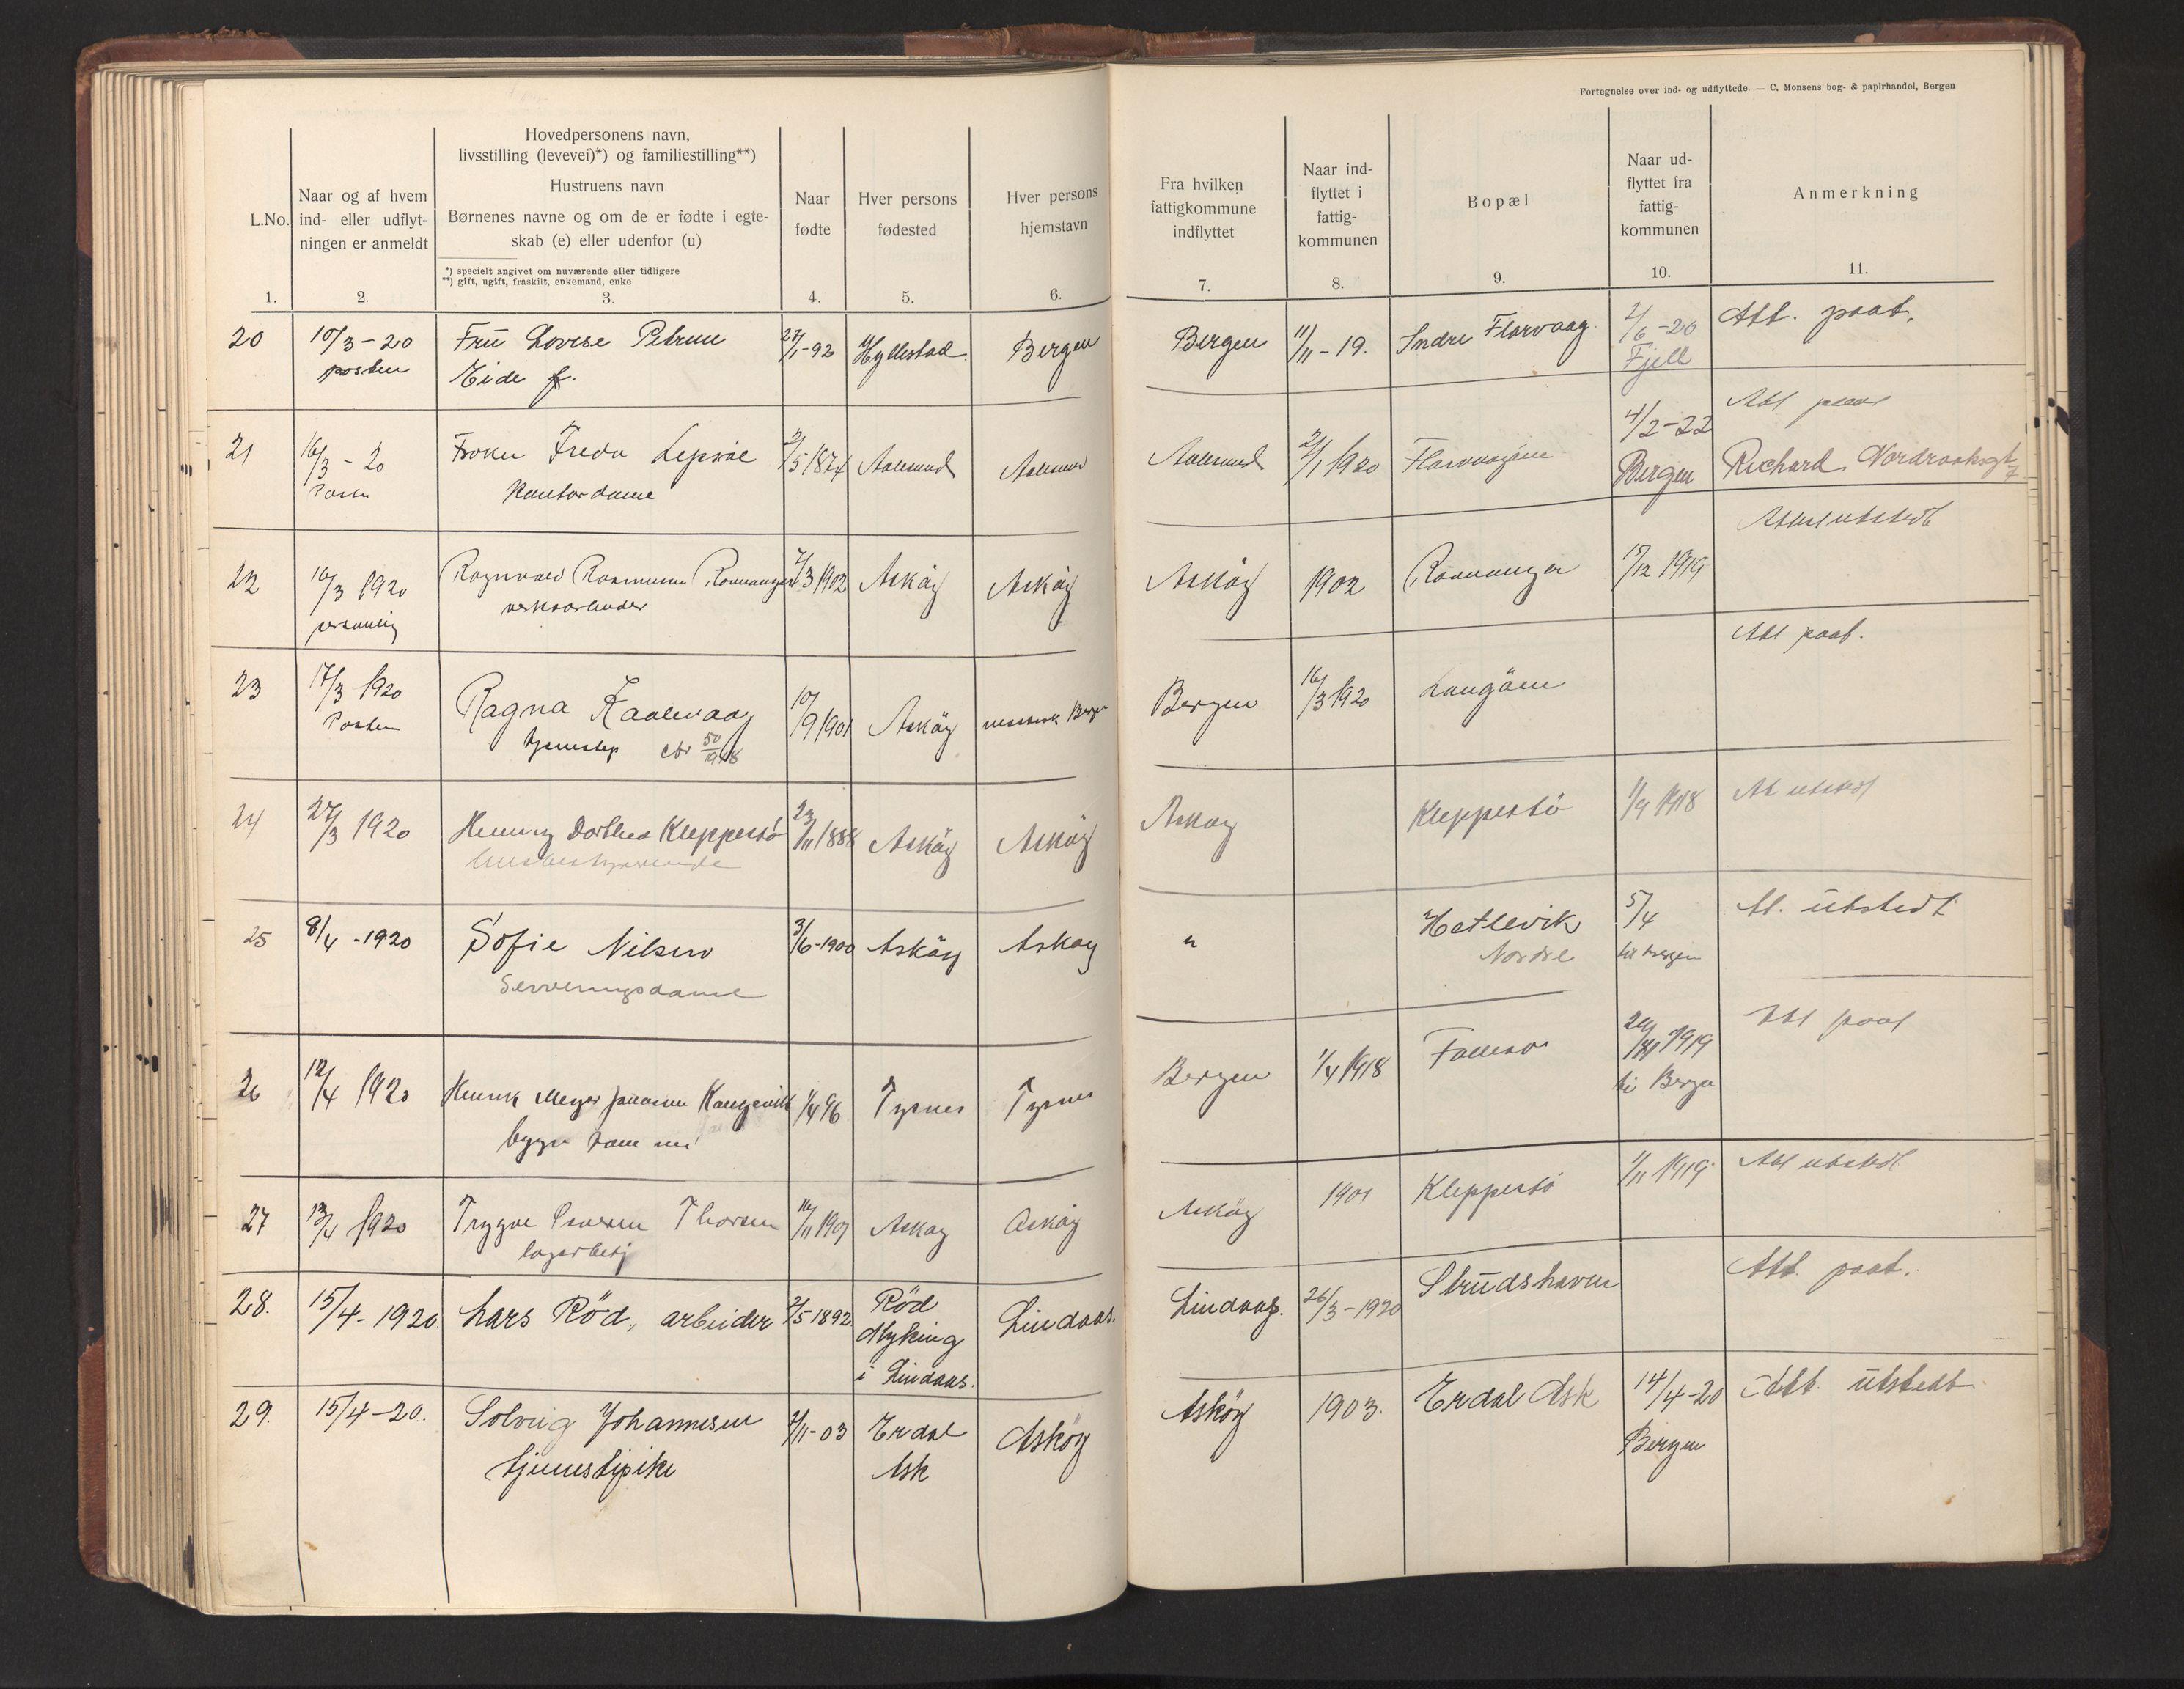 Fortegnelse over ind- og udflyttede. — C. Monsens bog- & papirhandel, Bergen
L.No.
Naar og af hvem
ind- eller udflyt-
ningen er anmeldt
Hovedpersonens navn,
livsstilling (levevei)*) og familiestilling**)
Hustruens navn
Børnenes navne og om de er fødte i egte-
skab (e) eller udenfor (u)
*) specielt angivet om nuværende eller tidligere
**) gift, ugift, fraskilt, enkemand, enke
Naar
fødte
Hver persons
fødested
Hver persons
hjemstavn
Fra hvilken
fattigkommune
indflyttet
Naar ind-
flyttet i
fattig-
kommunen
Bopæl
Naar ud-
flyttet fra
fattig-
kommunen
Anmerkning
1. 2. 3. 4. 5. 6. 7. 8. 9. 10. 11.
20 10/3-20 Fru Lovise Petrine 27/1-92 Hyllestad Bergen Bergen 11/11-19. Indre Florvaag 2/6-20 Att. paat.
posten Eide f. Fjell
21 16/3-20 Frøken Freda Lepsøe 2/5 1874 Aalesund Aalesund Aalesund 2/1 1920 Florvaagøen 4/2-22 Att paat
Posten Kontordame Bergen Richard Nordraaksgt 7
22 16/3 1920 Ragnvald Rasmussen Ramnanger 7/3 1902 Askøy Askøy Askøy 1902 Ramnanger 15/12 1919 Attest utstedt
personlig verksarbeider
23 17/3 1920 Ragna Kaalevaag 10/9 1901 Askøy Bergen Bergen 16/3 1920 Langøen Att paat.
Posten 50/1918
24 27/3 1920 Dorthea Kleppestø 23/11 1888 Askøy Askøy Askøy Kleppestø 1/9 1918 At utstedt
husbestyrerinde
25 8/4-1920 Sofie Nilsen 3/6-1900 Askøy Askøy " Hetlevik 5/4 At. utstedt
Serveringsdame Nordre til Bergen
26 12/4 1920 Henrik Meyer Johannessen Kaugesvik 1/4 96 Tysnes Tysnes Bergen 1/4 1918 1919 Att paat
til Bergen
27 13/4 1920 Trygve Thorsen 16/11 1901 Askøy Askøy Askøy 1901 Kleppestø 1/11 1919 Att utstedt
lagerbetj
28. 15/4-1920. Lars Röd, arbeider 2/5 1892 Röd Lindaas. Lindaas. 26/3-1920 Strudshavn Att. paat.
Myking
i Lindaas.
29. 15/4-20. Solveig Johannesen 7/11-03 Erdal Askøy Askøy 1903. Erdal Ask 14/4-20 Att. utstedt.
tjenestepike Ask Bergen